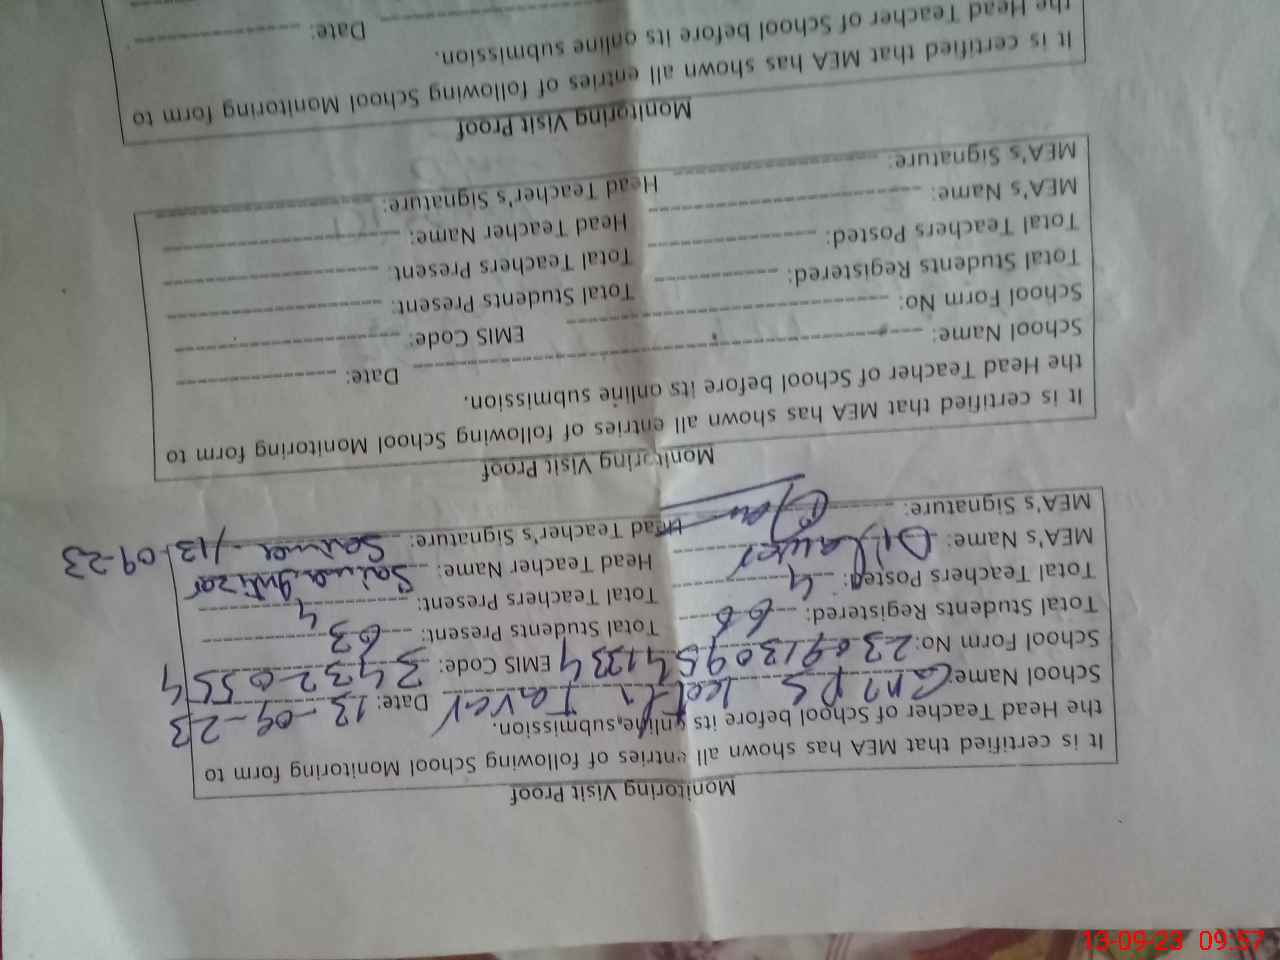 Monitoring Visit Proof
It is certified that MEA has shown all entries of following School Monitoring form to
the Head Teacher of School before its online submission.
School Name: Date: 13-09-23
School Form No: 23091309541334 EMIS Code: 34320554
Total Students Registered: 66 Total Students Present: 63
Total Teachers Posted: 4 Total Teachers Present: 4
MEA's Name: Dilawer Head Teacher Name: Saima Intizar
MEA's Signature: Head Teacher's Signature: Saima 13-09-23
Monitoring Visit Proof
It is certified that MEA has shown all entries of following School Monitoring form to
the Head Teacher of School before its online submission.
School Name: Date:
School Form No: EMIS Code:
Total Students Registered: Total Students Present:
Total Teachers Posted: Total Teachers Present:
MEA's Name: Head Teacher Name:
MEA's Signature: Head Teacher's Signature:
Monitoring Visit Proof
It is certified that MEA has shown all entries of following School Monitoring form to
the Head Teacher of School before its online submission.
Date:
13-09-23 09:57